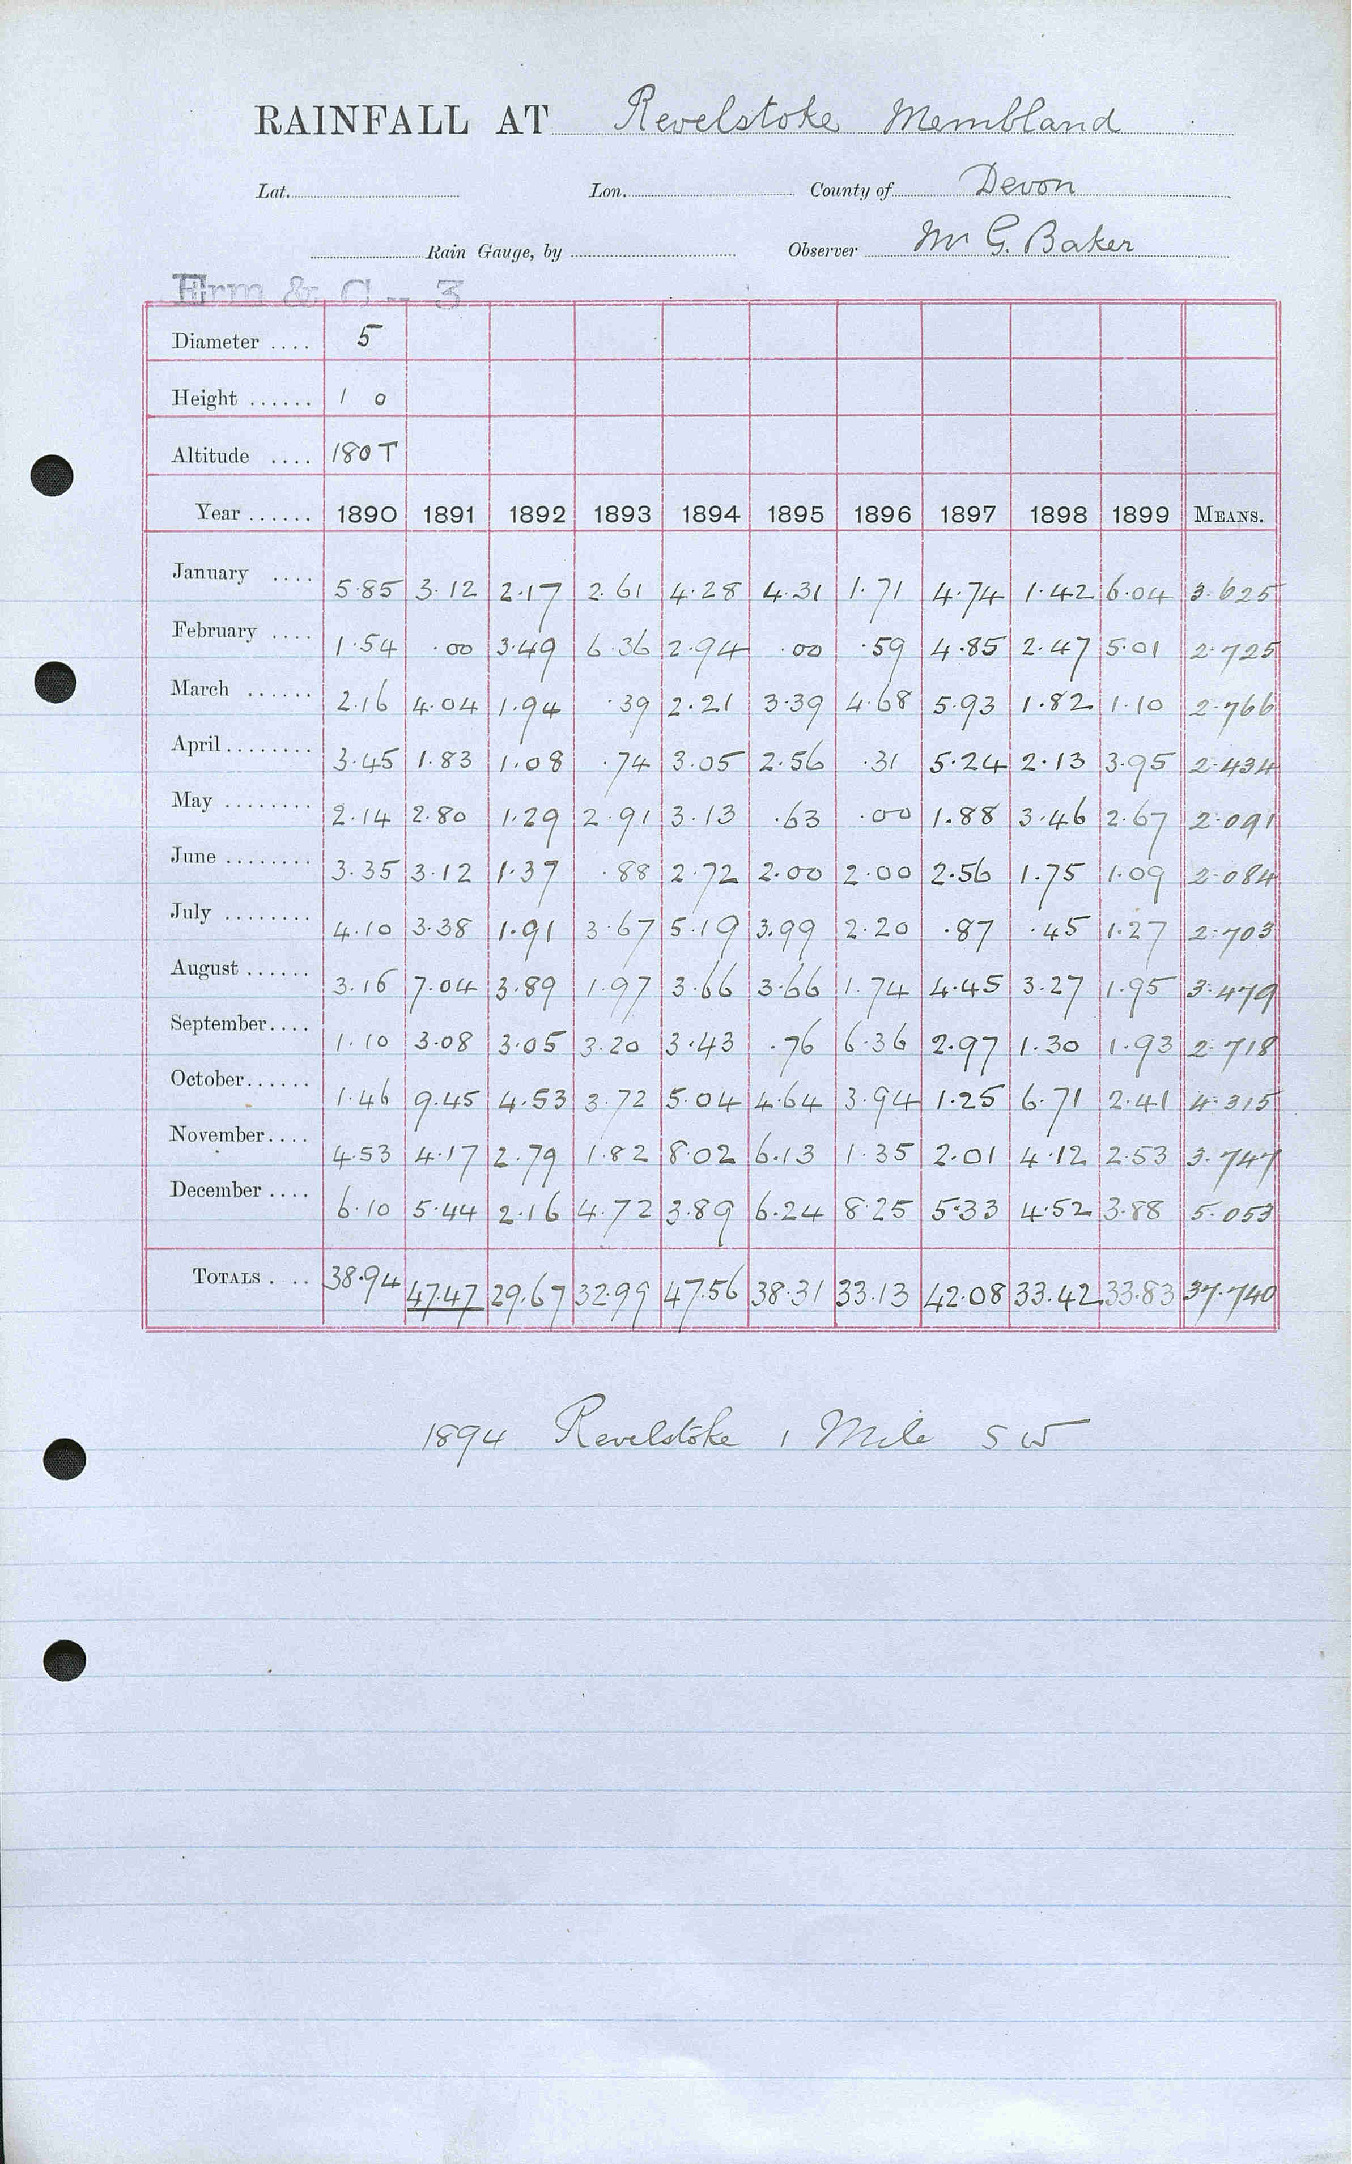 RAINFALL AT Revelstoke Membland
Lat. Lon. County of Devon
Rain Gauge, by Observer Mr G. Baker
Erm & C - 3
Diameter .... 5
Height ...... 1 0
Altitude .... 180 T
Year ...... 1890 1891 1892 1893 1894 1895 1896 1897 1898 1899 MEANS.
January .... 5.85 3.12 2.17 2.61 4.28 4.31 1.71 4.74 1.42 6.04 3.625
February .... 1.54 .00 3.49 6.36 2.94 .00 .59 4.85 2.47 5.01 2.725
March ...... 2.16 4.04 1.94 .39 2.21 3.39 4.68 5.93 1.82 1.10 2.766
April ........ 3.45 1.83 1.08 .74 3.05 2.56 .31 5.24 2.13 3.95 2.434
May ........ 2.14 2.80 1.29 2.91 3.13 .63 .00 1.88 3.46 2.67 2.091
June ........ 3.35 3.12 1.37 .88 2.72 2.00 2.00 2.56 1.75 1.09 2.084
July ........ 4.10 3.38 1.91 3.67 5.19 3.99 2.20 .87 .45 1.27 2.703
August ...... 3.16 7.04 3.89 1.97 3.66 3.66 1.74 4.45 3.27 1.95 3.479
September .... 1.10 3.08 3.05 3.20 3.43 .76 6.36 2.97 1.30 1.93 2.718
October ...... 1.46 9.45 4.53 3.72 5.04 4.64 3.94 1.25 6.71 2.41 4.315
November .... 4.53 4.17 2.79 1.82 8.02 6.13 1.35 2.01 4.12 2.53 3.747
December .... 6.10 5.44 2.16 4.72 3.89 6.24 8.25 5.33 4.52 3.88 5.053
TOTALS . .. 38.94 47.47 29.67 32.99 47.56 38.31 33.13 42.08 33.42 33.83 37.740
1894 Revelstoke 1 Mile SW